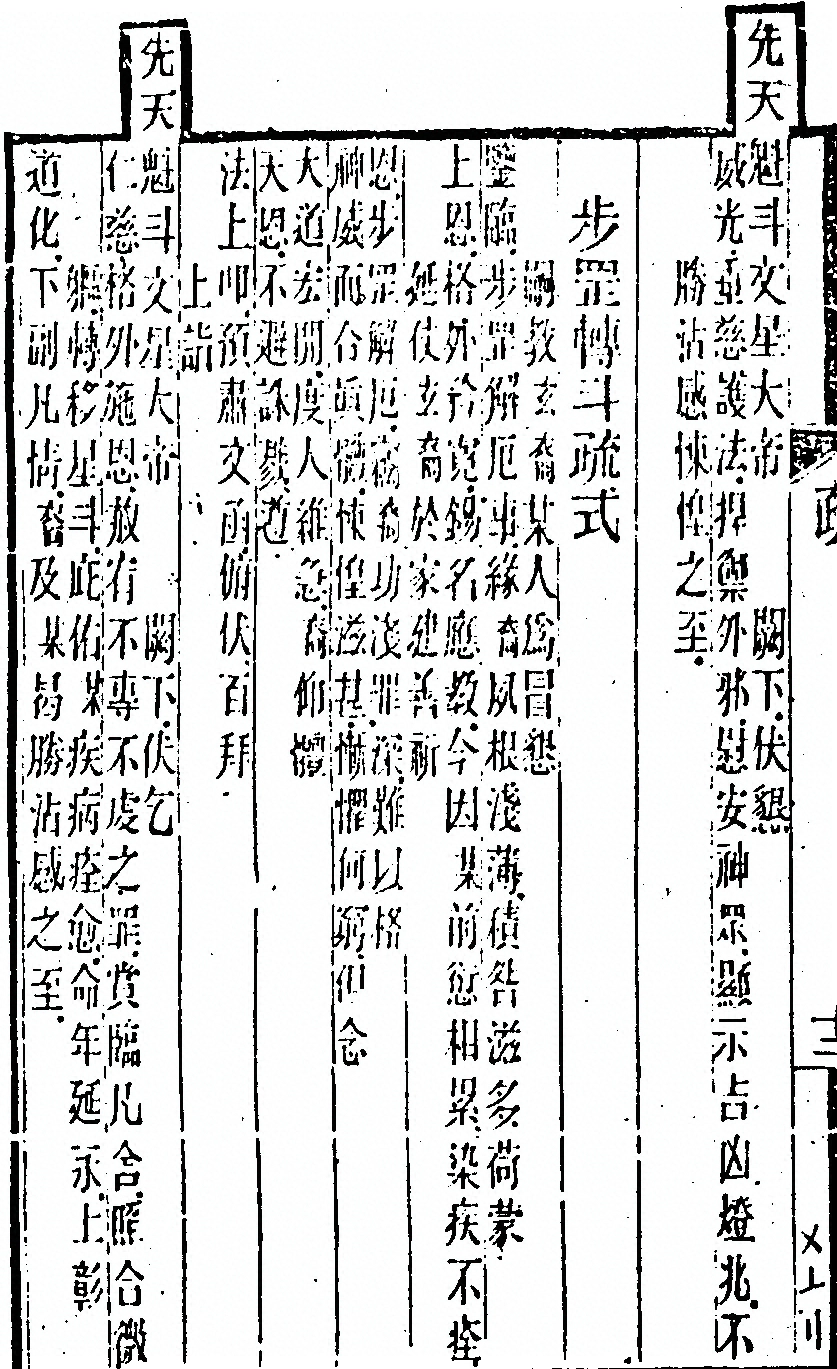 先天
魁斗文星大帝　闕下伏懇
威光垂慈護法捍禦外邪慰安神眾顯示吉凶燈兆不
勝沾感悚惶之至
步罡轉斗疏式
嗣教玄裔某人爲冒懇
鑒臨步罡解厄事緣裔夙根淺薄積咎滋多荷蒙
上恩格外矜寬錫名應教今因某前愆相累染疾不痊
延仗玄裔於家建善祈
恩步罡解厄竊裔功淺罪深難以格
神威而合眞機悚惶滋甚慚懼何窮但念
大道宏開度人維急裔仰體
天恩不避誅戮遵
法上叩預肅文函俯伏百拜
上詣
先天
魁斗文星大帝　闕下伏乞
仁慈格外施恩赦宥不專不虔之罪賞臨凡合照合微
軀轉移星斗庇佑某疾病痊愈命年延永上彰
道化下副凡情裔及某曷勝沾感之至
十二